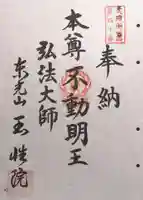 奉納
本尊不動明王
弘法大師
東光山
玉性院